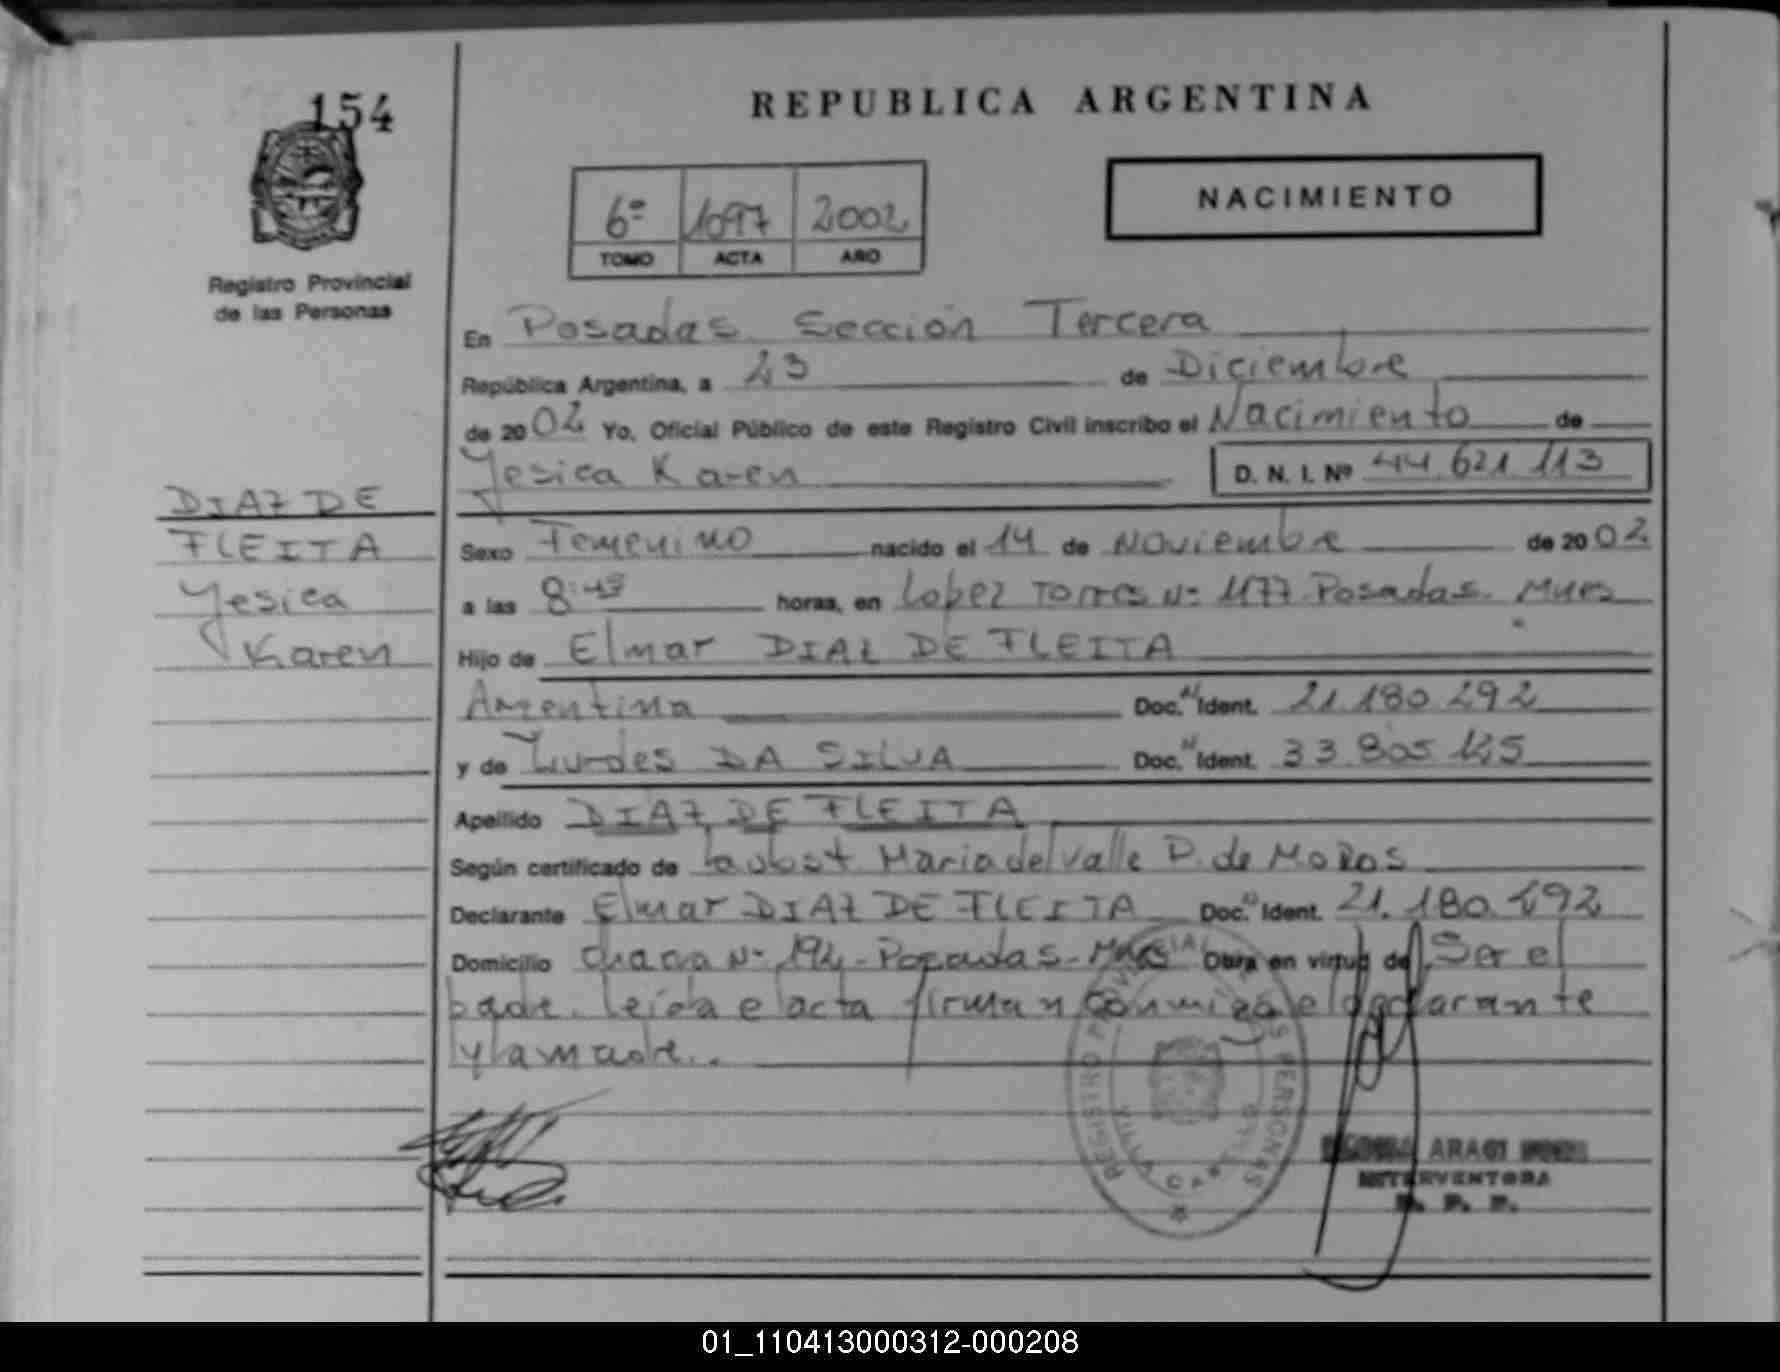 154
REPUBLICA ARGENTINA
6º 1097 2002
TOMO ACTA AÑO
NACIMIENTO
Registro Provincial
de las Personas
En Posadas Sección Tercera
República Argentina, a 23 de Diciembre
de 2002 Yo, Oficial Público de este Registro Civil inscribo el Nacimiento de
Yesica Karen D. N. I. Nº 44.621.113
DIAZ DE
FLEITA
Yesica
Karen
Sexo Femenino nacido el 14 de Noviembre de 2002
a las 8:45 horas, en Lopez Torres Nº 1177 Posadas. Mnes
Hijo de Elmar DIAZ DE FLEITA
Argentina Doc. N Ident. 21.180.292
y de Lurdes DA SILVA Doc. N Ident. 33.805.125
Apellido DIAZ DE FLEITA
Según certificado de la obst. Maria del Valle P. de MOROS
Declarante Elmar DIAZ DE FLEITA Doc. N Ident. 21.180.292
Domicilio Chacra Nº 192 - Posadas - Mnes Obra en virtud de Ser el
padre. leida el acta firman conmigo el declarante
y la madre..
REGISTRO PROVINCIAL DE LAS PERSONAS
VILLA CABELLO
ARAGI
INTERVENTORA
R. P. P.
01_110413000312-000208